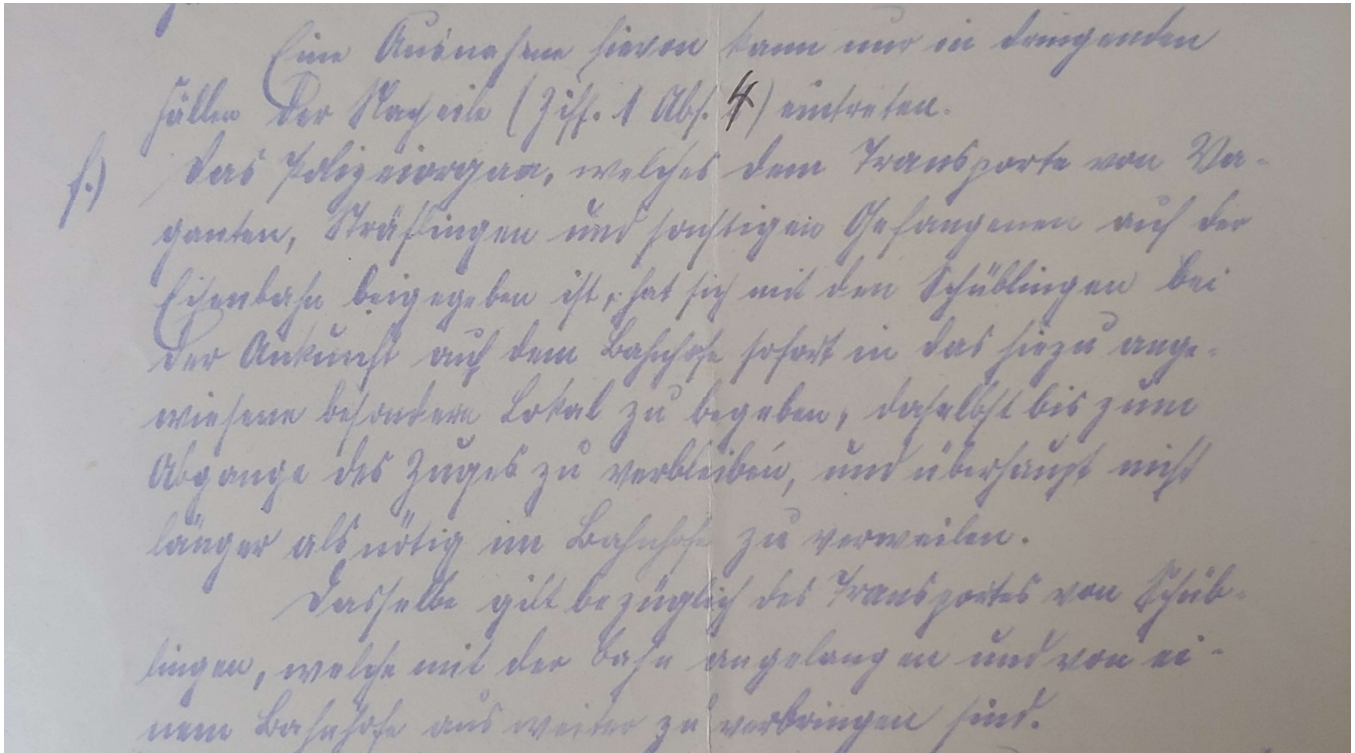 Eine Ausnahme hievon kann nur in dringenden
Fällen der Nacheile (Ziff. 1 Abs. 4) eintreten.
f.) Das Polizeiorgan, welches dem Transporte von Va-
ganten, Sträflingen und sonstigen Gefangenen auf der
Eisenbahn beigegeben ist, hat sich mit den Schüblingen bei
der Ankunft auf dem Bahnhofe sofort in das hiezu ange-
wiesene besondere Lokal zu begeben, daselbst bis zum
Abgange des Zuges zu verbleiben, und überhaupt nicht
länger als nötig im Bahnhofe zu verweilen.
Dasselbe gilt bezüglich des Transportes von Schüb-
lingen, welche mit der Bahn angelangen und von ei-
nem Bahnhofe aus weiter zu verbringen sind.